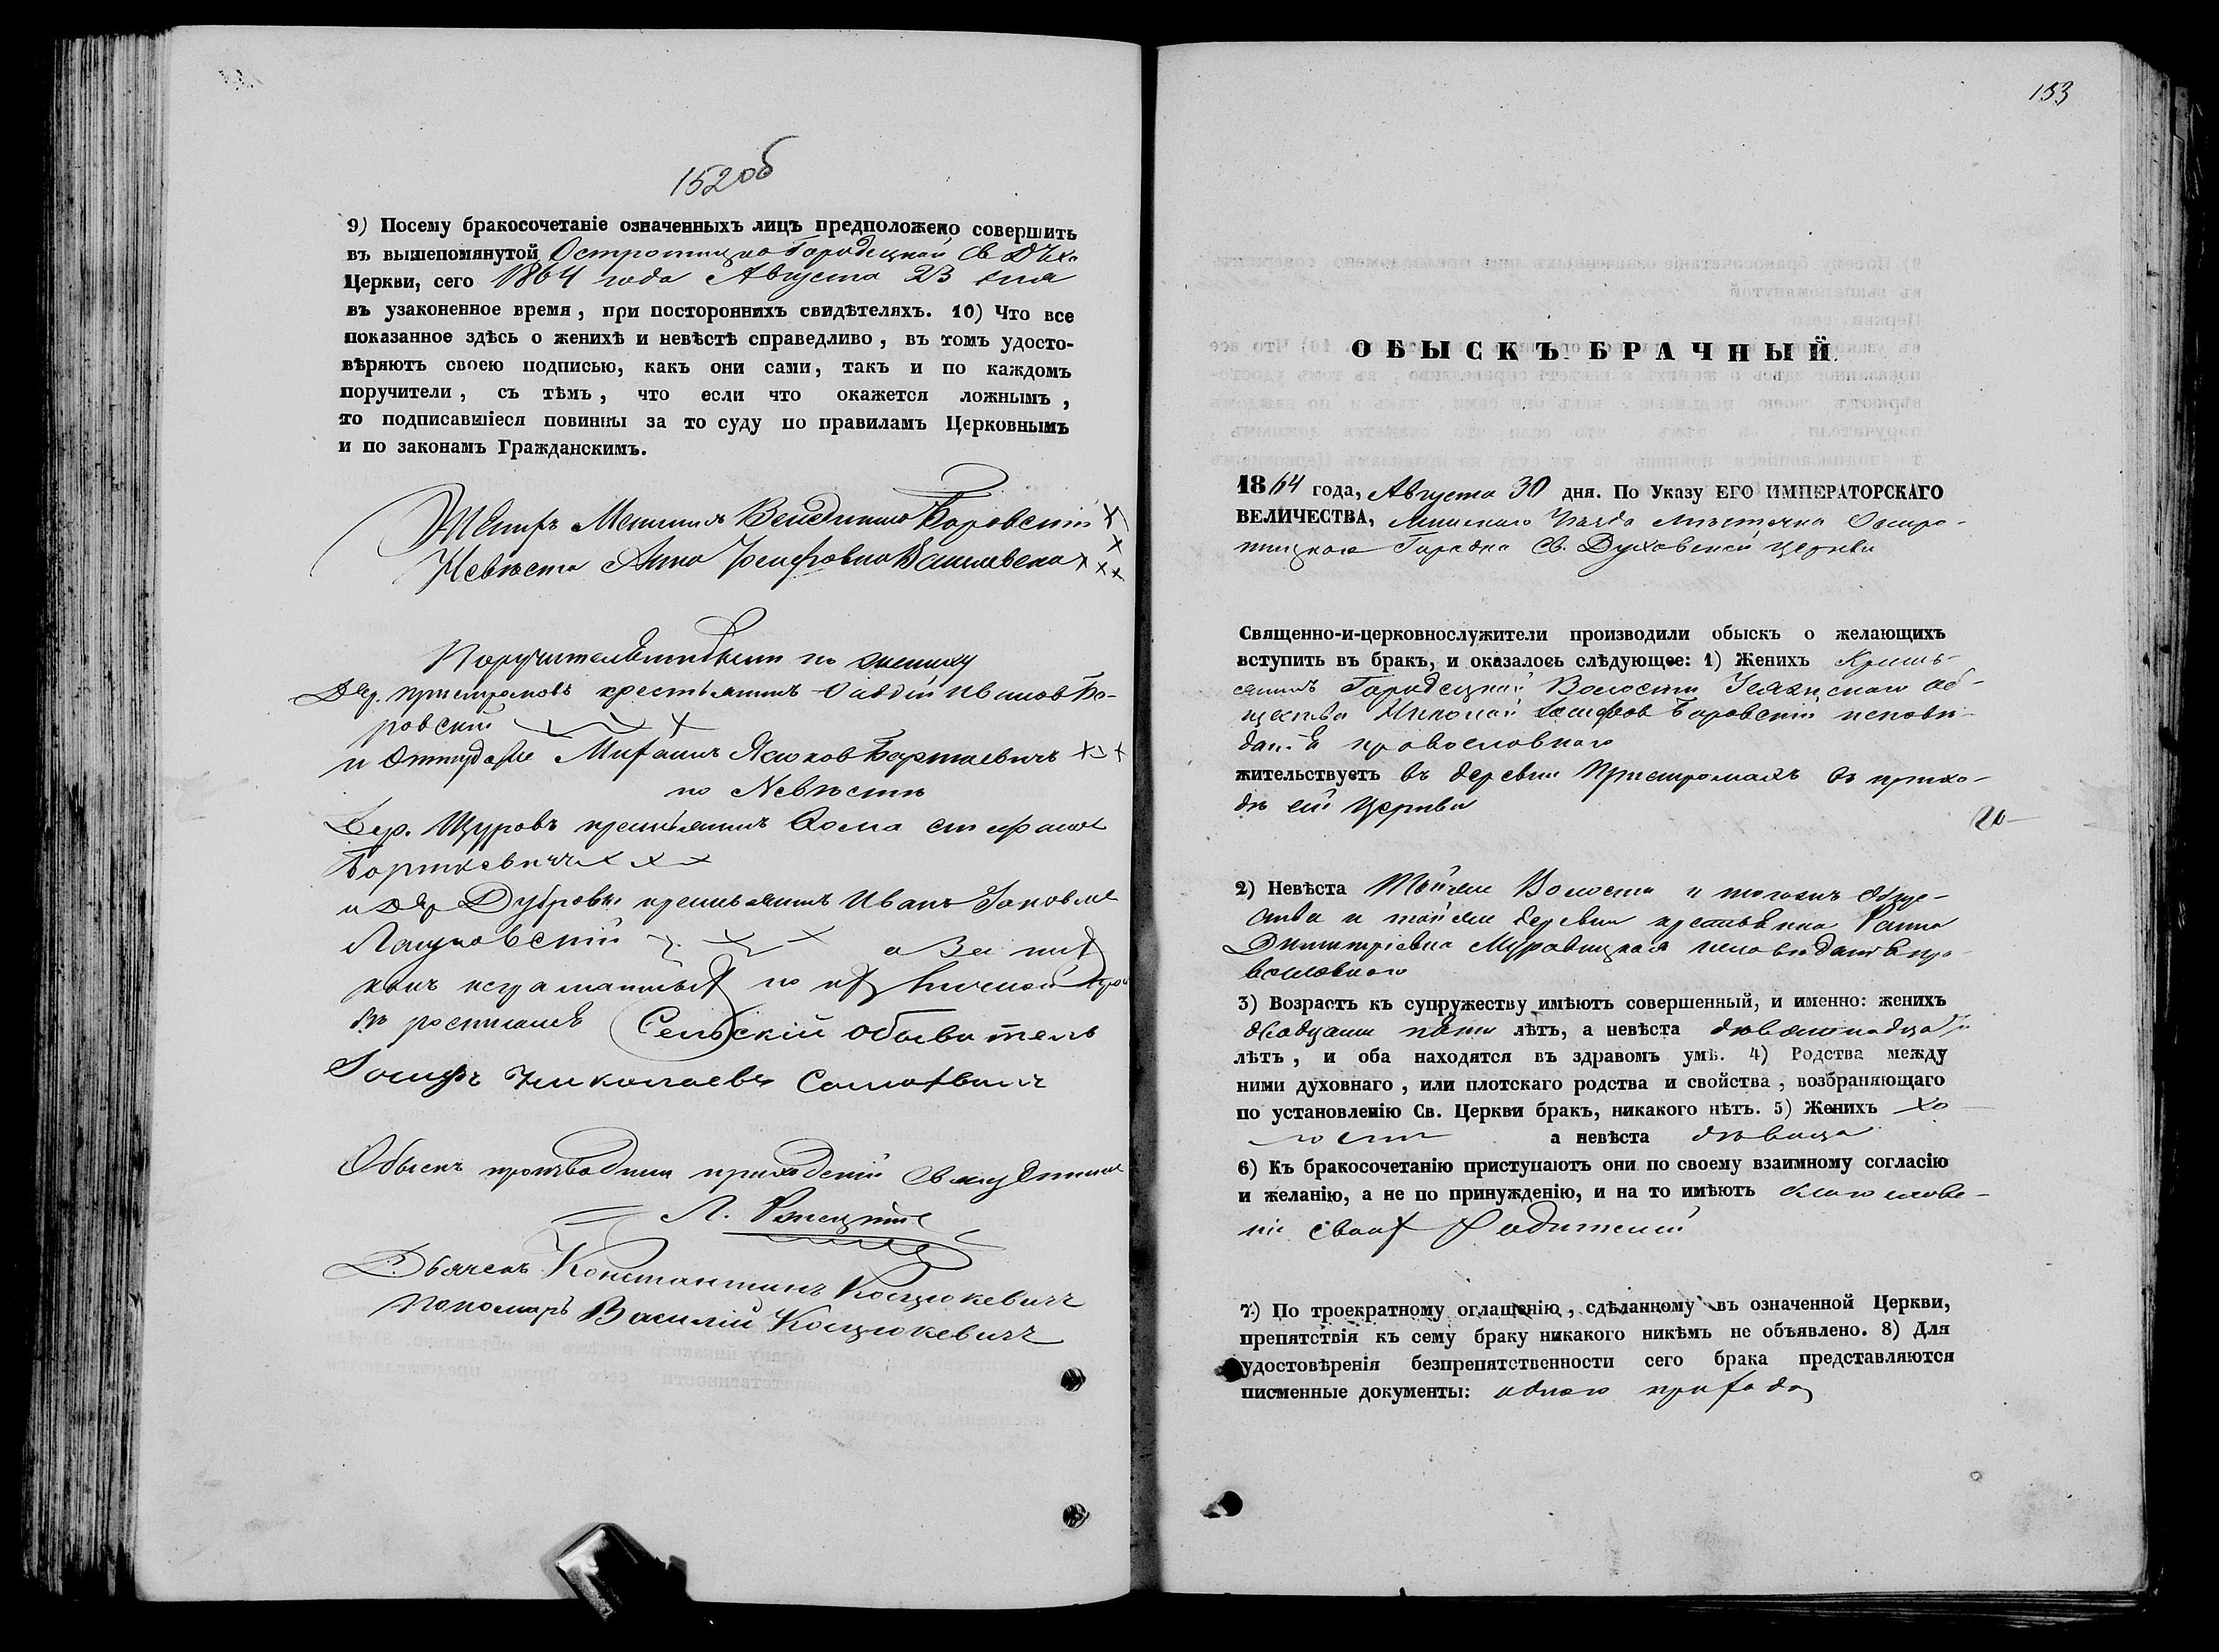 152 об
9) Посему бракосочетаніе означенныхъ лицъ предположено совершить
въ вышепомянутой Острошицко Городецкой Св Духо
Церкви, сего 1864 года Августа 23 дня
въ узаконенное время, при постороннихъ свидѣтеляхъ. 10) Что все
показанное здѣсь о женихѣ и невѣстѣ справедливо, въ томъ удосто-
вѣряютъ своею подписью, какъ они сами, такъ и по каждомъ
поручители, съ тѣмъ, что если что окажется ложнымъ,
то подписавшіеся повинны за то суду по правиламъ Церковнымъ
и по законамъ Гражданскимъ.
Женихъ Боровскій
Невѣста Анна Василевска
по жениху
Дер. крестьянинъ Иванов Бо-
ровскій
и оттудаже
по Невѣстѣ
Дер. Щуровъ крестьянинъ Фома
и дер Дубровки крестьянинъ Иванъ
а за них
какъ неграмотных по их личной прось
бѣ Сельскій обыватель
Іосифъ Николаевъ
Обыскъ производили приходскій Священник
Дьячекъ Константинъ Косцюкевичъ
Пономаръ Василій Косцюкевичъ
153
ОБЫСКЪ БРАЧНЫЙ.
1864 года, Августа 30 дня. По Указу ЕГО ИМПЕРАТОРСКАГО
ВЕЛИЧЕСТВА, Минскаго Уѣзда мѣстечка Остро-
шицкаго Городка Св. Духовской церкви
Священно-и-церковнослужители производили обыскъ о желающихъ
вступить въ бракъ, и оказалось слѣдующее: 1) Женихъ Кресть-
янинъ Городецкой Волости об-
щества Николай Іосифов Боровскій исповѣ-
данія православнаго
жительствуетъ въ деревни Пристромахъ въ прихо-
дѣ сей Церкви
2) Невѣста Тойже Волости и тогожъ обще-
ства и тойже деревни крестьянка
Димитріевна Муравицкая исповѣданія пра-
вославнаго
3) Возрастъ къ супружеству имѣютъ совершенный, и именно: женихъ
двадцати пяти лѣтъ, а невѣста девятнадцати
лѣтъ, и оба находятся въ здравомъ умѣ. 4) Родства между
ними духовнаго, или плотскаго родства и свойства, возбраняющаго
по установленію Св. Церкви бракъ, никакого нѣтъ. 5) Женихъ хо
лостъ а невѣста дѣвица
6) Къ бракосочетанію приступаютъ они по своему взаимному согласію
и желанію, а не по принужденію, и на то имѣютъ благослове-
ніе своих Родителей
7) По троекратному оглашенію, сдѣланному въ означенной Церкви,
препятствія къ сему браку никакого никѣмъ не объявлено. 8) Для
удостовѣренія безпрепятственности сего брака представляются
писменные документы: одного прихода